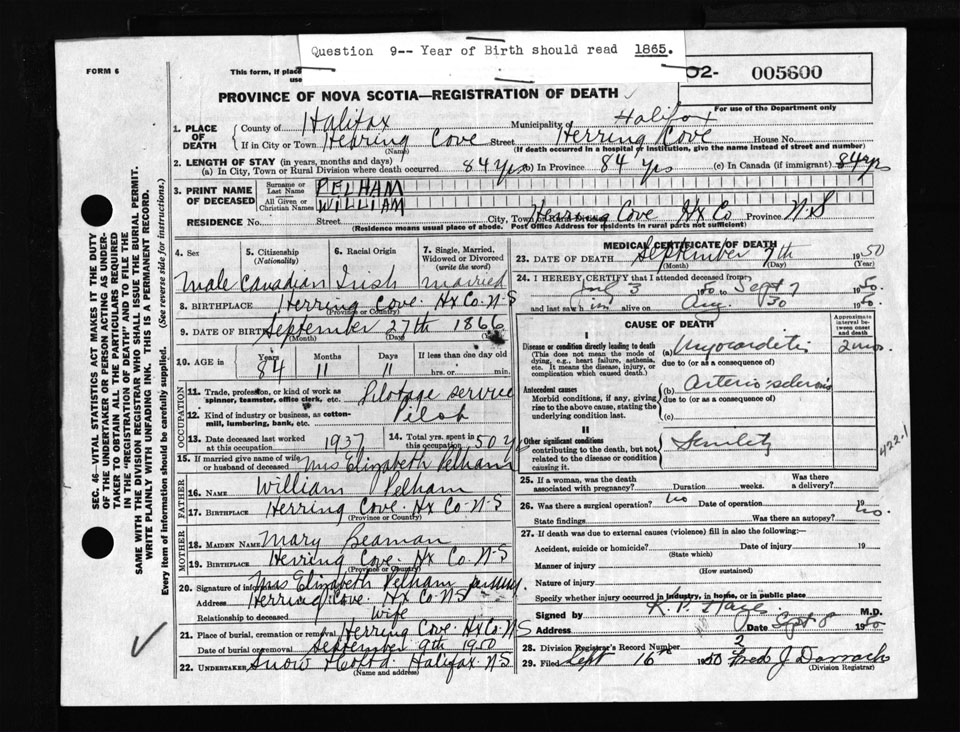 Question 9-- Year of Birth should read 1865.
FORM 6
This form, if place
use
O2- 005600
PROVINCE OF NOVA SCOTIA—REGISTRATION OF DEATH
For use of the Department only
1. PLACE OF DEATH { County of Halifax Municipality of Halifax
If in City or Town Herring Cove Street Herring Cove House No.
(Name) (If death occurred in a hospital or institution, give the name instead of street and number)
2. LENGTH OF STAY (in years, months and days)
(a) In City, Town or Rural Division where death occurred 84 yrs (b) In Province 84 yrs (c) In Canada (if immigrant) 84 yrs
3. PRINT NAME OF DECEASED { Surname or Last Name PELHAM
All Given or Christian Names WILLIAM
RESIDENCE No. Street City, Town or Rural Division Herring Cove Hx Co Province N.S
(Residence means usual place of abode. Post Office Address for residents in rural parts not sufficient)
4. Sex 5. Citizenship (Nationality) 6. Racial Origin 7. Single, Married, Widowed or Divorced (write the word)
Male Canadian Irish married
8. BIRTHPLACE Herring Cove. Hx Co. N.S
(Province or Country)
9. DATE OF BIRTH September 27th 1866
(Month) (Day)
10. AGE in { Years Months Days If less than one day old
84 11 11 hrs. or min.
OCCUPATION
11. Trade, profession, or kind of work as spinner, teamster, office clerk, etc. Pilotage service
12. Kind of industry or business, as cotton-mill, lumbering, bank, etc. Pilot
13. Date deceased last worked at this occupation 1937 14. Total yrs. spent in this occupation 50 y
15. If married give name of wife or husband of deceased Mrs Elizabeth Pelham
FATHER
16. NAME William Pelham
17. BIRTHPLACE Herring Cove. Hx Co. N.S
(Province or Country)
MOTHER
18. MAIDEN NAME Mary Beaman
19. BIRTHPLACE Herring Cove. Hx Co. N.S
(Province or Country)
20. Signature of informant Mrs Elizabeth Pelham
Address Herring Cove. Hx Co N.S
Relationship to deceased Wife
21. Place of burial, cremation or removal Herring Cove. Hx Co. N.S
Date of burial or removal September 9th 1950
22. UNDERTAKER Snow & Co Ltd. Halifax N.S.
(Name and address)
MEDICAL CERTIFICATE OF DEATH
23. DATE OF DEATH September 7th 1950
(Month) (Day) (Year)
24. I HEREBY CERTIFY that I attended deceased from:
July 3 1950 to Sept 7 1950.
and last saw him alive on Aug. 30 1950.
CAUSE OF DEATH
Approximate interval between onset and death
I
Disease or condition directly leading to death (a) Myocarditis 2 mos.
(This does not mean the mode of dying, e.g., heart failure, asthenia, etc. It means the disease, injury, or complication which caused death.)
due to (or as a consequence of)
Antecedent causes (b) Arterio-sclerosis
Morbid conditions, if any, giving rise to the above cause, stating the underlying condition last.
due to (or as a consequence of)
(c)
II
Other significant conditions contributing to the death, but not related to the disease or condition causing it. Senility
422.1
25. If a woman, was the death associated with pregnancy? Duration weeks. Was there a delivery?
26. Was there a surgical operation? No Date of operation
State findings Was there an autopsy? No.
27. If death was due to external causes (violence) fill in also the following:
Accident, suicide or homicide? Date of injury 19
(State which)
Manner of injury
(How sustained)
Nature of injury
Specify whether injury occurred in industry, in home, or in public place
Signed by M.D.
Address Date Sept 8 1950
28. Division Registrar's Record Number 2
29. Filed Sept 16th 1950 Fred J Darrach
(Division Registrar)
SEC. 46—VITAL STATISTICS ACT MAKES IT THE DUTY
OF THE UNDERTAKER OR PERSON ACTING AS UNDER-
TAKER TO OBTAIN ALL THE PARTICULARS REQUIRED
IN THE "REGISTRATION OF DEATH" AND TO FILE THE
SAME WITH THE DIVISION REGISTRAR WHO SHALL ISSUE THE BURIAL PERMIT.
WRITE PLAINLY WITH UNFADING INK. THIS IS A PERMANENT RECORD.
Every item of information should be carefully supplied. (See reverse side for instructions.)